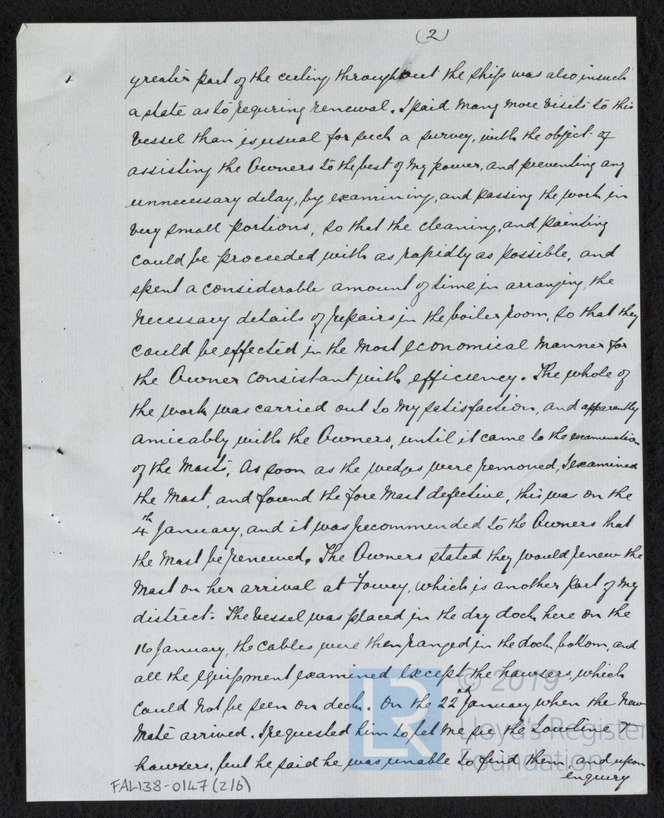 (2)
greater part of the ceiling throughout the ship was also in such
a state as to requiring renewal. I paid many more visits to this
vessel than is usual for such a survey, with the object of
assisting the Owners to the best of my power, and preventing any
unnecessary delay, by examining, and passing the work in
very small portions, so that the cleaning, and painting
could be proceeded with as rapidly as possible, and
spent a considerable amount of time in arranging, the
necessary details of repairs in the boiler room, so that they
could be effected in the most economical manner for
the Owner consistant with efficiency. The whole of
the work was carried out to my satisfaction, and apparently
amicably with the Owners, until it came to the examination
of the Masts, As soon as the wedges were removed, I examined
the Mast, and found the Fore Mast defective, this was on the
4th January, and it was recommended to the Owners that
the Mast be renewed. The Owners stated they would renew the
Mast on her arrival at Fowey, which is another port of my
district. The vessel was placed in the dry dock here on the
16 January, the cables were then ranged in the dock bottom, and
all the equipment examined except the hawsers, which
could not be seen on deck. On the 22nd January when the new
Mate arrived. I requested him to let me see the towline &
hawsers, but he said he was unable to find them, and upon
enquiry
FAL138-0147 (2/6)
LR
© 2019
Lloyd's Register
Foundation